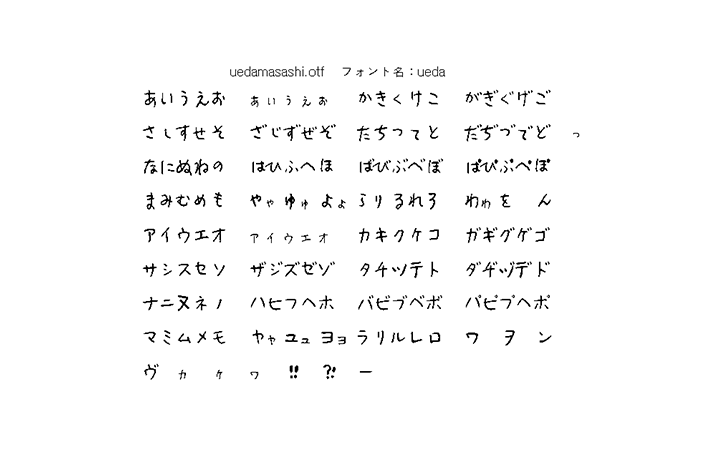 uedamasashi.otf フォント名：ueda
あいうえお ぁぃぅぇぉ かきくけこ がぎぐげご
さしすせそ ざじずぜぞ たちつてと だぢづでど っ
なにぬねの はひふへほ ばびぶべぼ ぱぴぷぺぽ
まみむめも やゃゆゅよょ らりるれろ わゎを ん
アイウエオ ァィゥェォ カキクケコ ガギグゲゴ
サシスセソ ザジズゼゾ タチツテト ダヂヅデド
ナニヌネノ ハヒフヘホ バビブベボ パピプペポ
マミムメモ ヤャユュヨョ ラリルレロ ワ ヲ ン
ヴ ヵ ヶ ヮ !! ?! ー